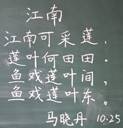 江南
江南可采莲，
莲叶何田田。
鱼戏莲叶间，
鱼戏莲叶东。
马晓丹 10.25